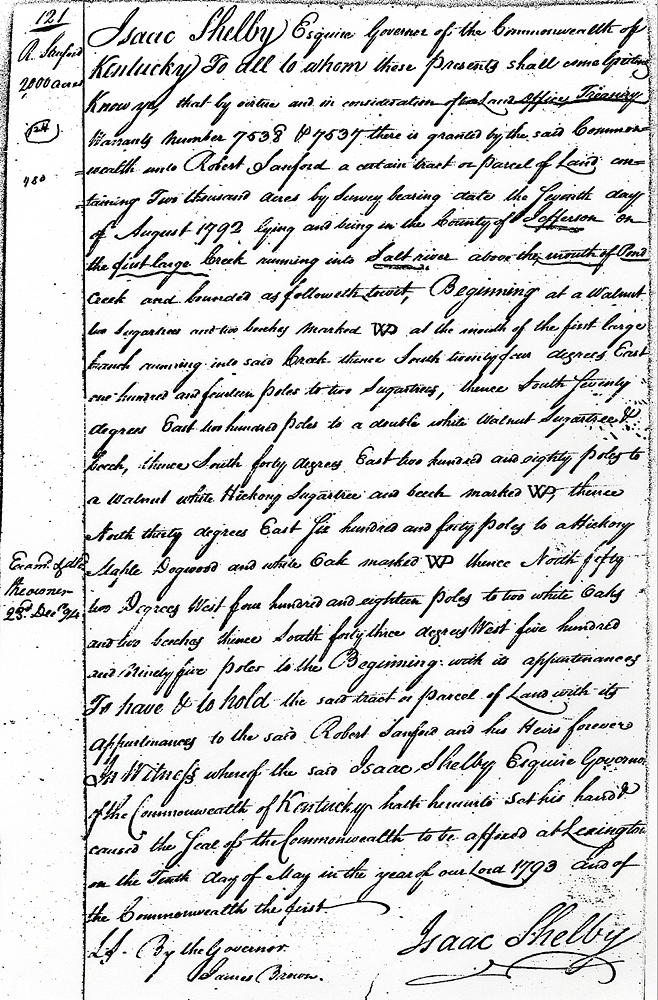 121
R. Sanford
2000 acres
780
Isaac Shelby Esquire Governor of the Commonwealth of
Kentucky To all to whom these Presents shall come Greeting
Know ye, that by virtue and in consideration of a Land Office Treasury
Warrants Number 7538 & 7537 there is granted by the said Common=
=wealth unto Robert Sanford a certain tract or Parcel of Land con=
=taining Two thousand Acres by Survey bearing date the Seventh day
of August 1792 lying and being in the County of Jefferson on
the first large Creek running into Salt river above the mouth of Pond
Creek and bounded as followeth towit, Beginning at a Walnut
two Sugartrees and two beeches marked WP at the mouth of the first large
branch running into said Creek thence South twenty four degrees East
one hundred and fourteen Poles to two Sugartrees, thence South Seventy
degrees East two hundred Poles to a double white Walnut Sugartree &
beech, thence South forty degrees East two hundred and eighty Poles to
a Walnut white Hickory Sugartree and beech marked WP, thence
North thirty degrees East Six hundred and forty Poles to a Hickory
Maple Dogwood and white Oak marked WP thence North fifty
two Degrees West four hundred and eighteen Poles to two white Oaks
and two beeches thence South forty three degrees West five hundred
and Ninety five Poles to the Beginning with its appurtenances
To have & to hold the said tract or Parcel of Land with its
appurtenances to the said Robert Sanford and his Heirs forever
In Witness whereof the said Isaac Shelby Esquire Governor
of the Commonwealth of Kentucky hath hereunto Set his hand &
caused the Seal of the Commonwealth to be affixed at Lexington
on the Tenth day of May in the year of our Lord 1793 and of
the Commonwealth the first
LS. By the Governor
James Brown.
Isaac Shelby
Exam. &
the owner
23d. Decr. 94